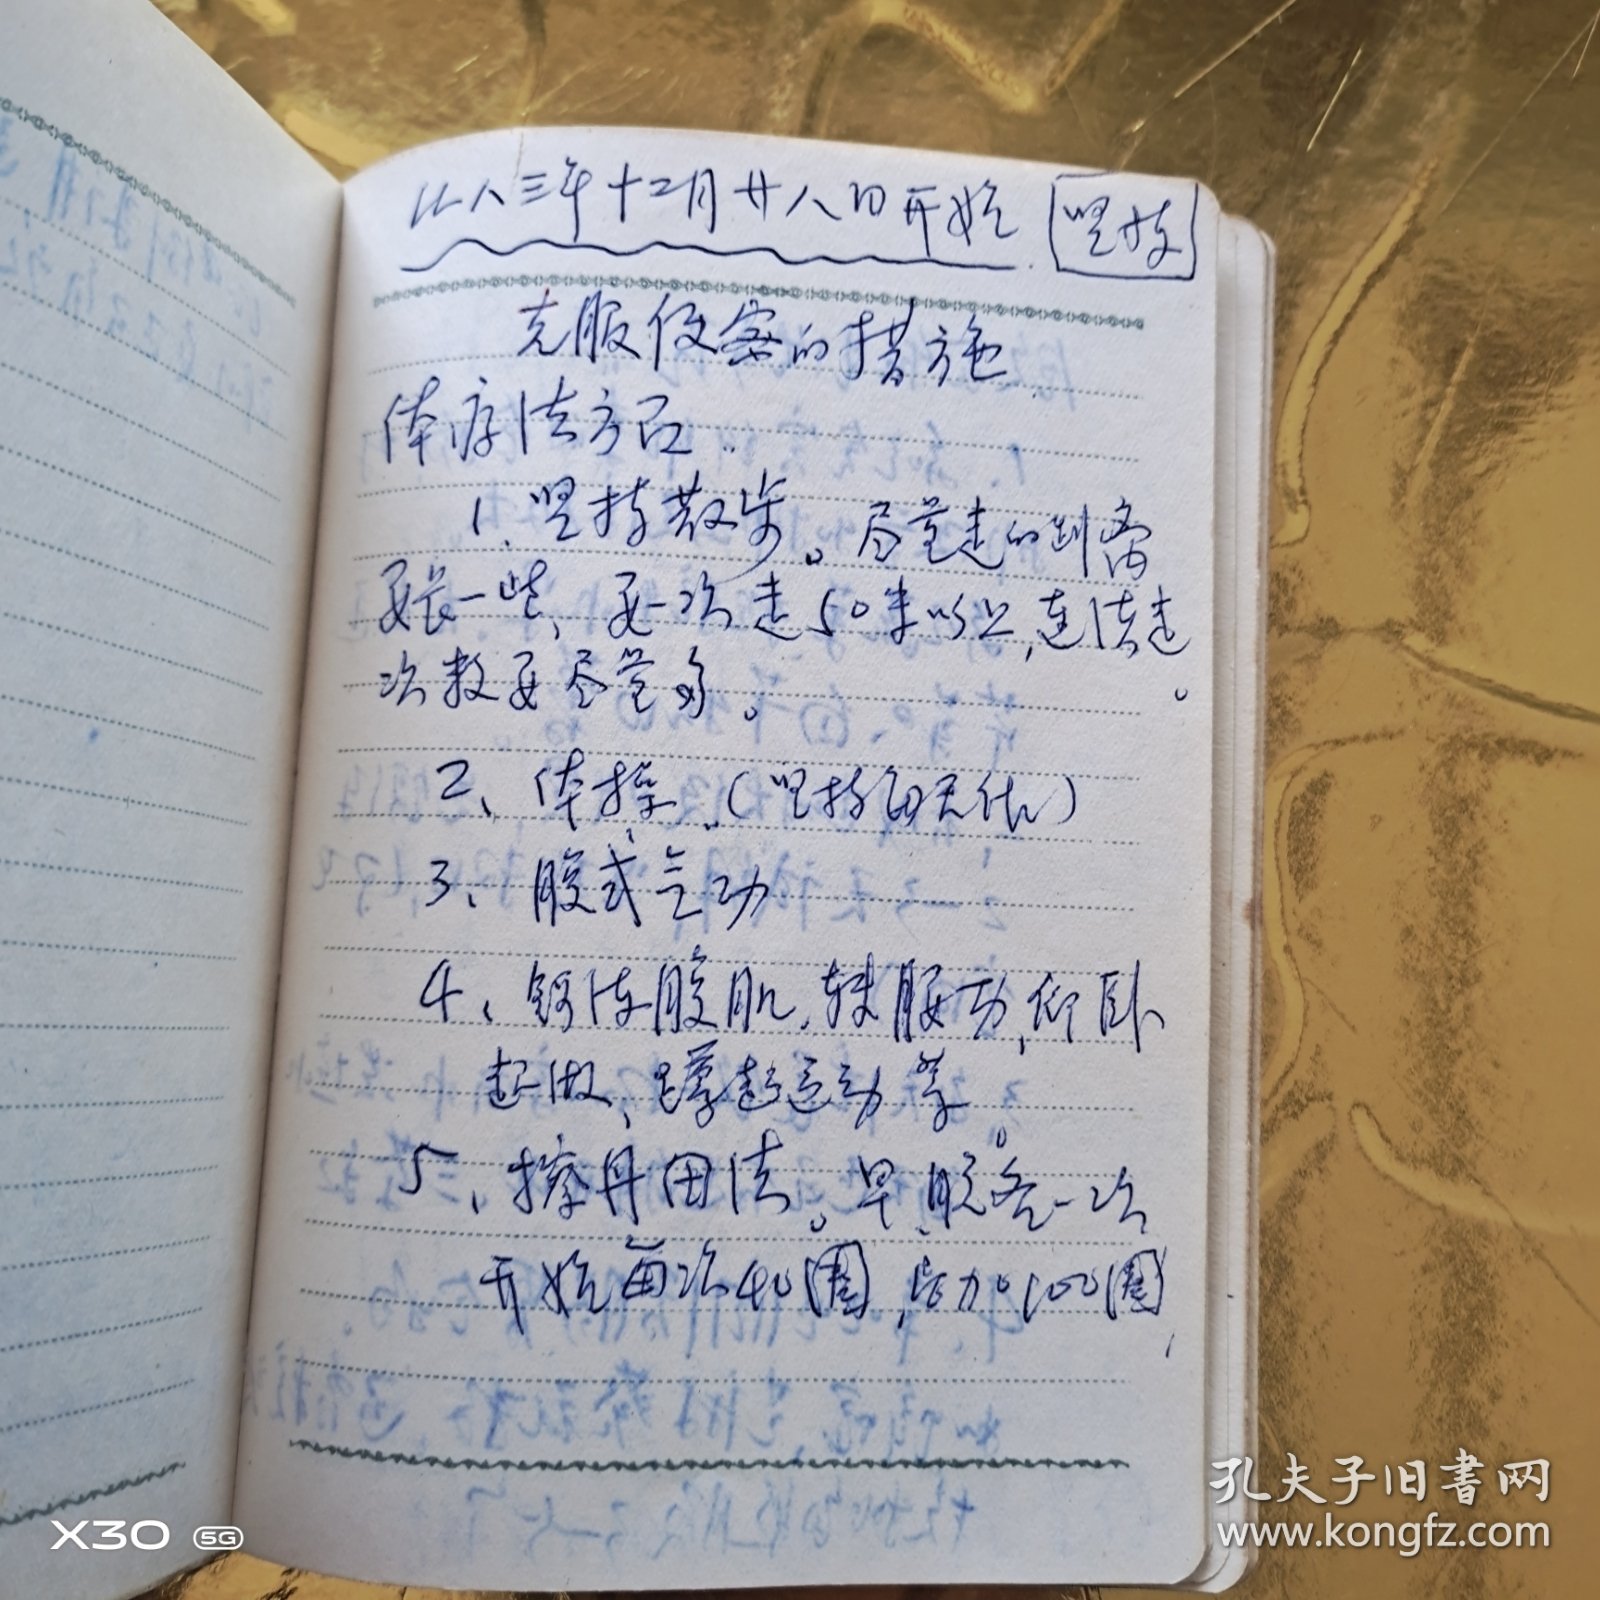 从八三年十二月廿八日开始 坚持
克服便密的措施
体疗法方面
1.坚持散步。尽量走的距离
要长一些、要一次走50米以上,连续走。
次数要尽量多。
2、体操.(坚持每天作)
3、腹式气功
4、锻炼腹肌.转腰功,仰卧
起做、蹲起运动等。
5、擦丹田法。早、晚各一次
开始每次40圈,后加100圈,
X30 5G
孔夫子旧书网
www.kongfz.com